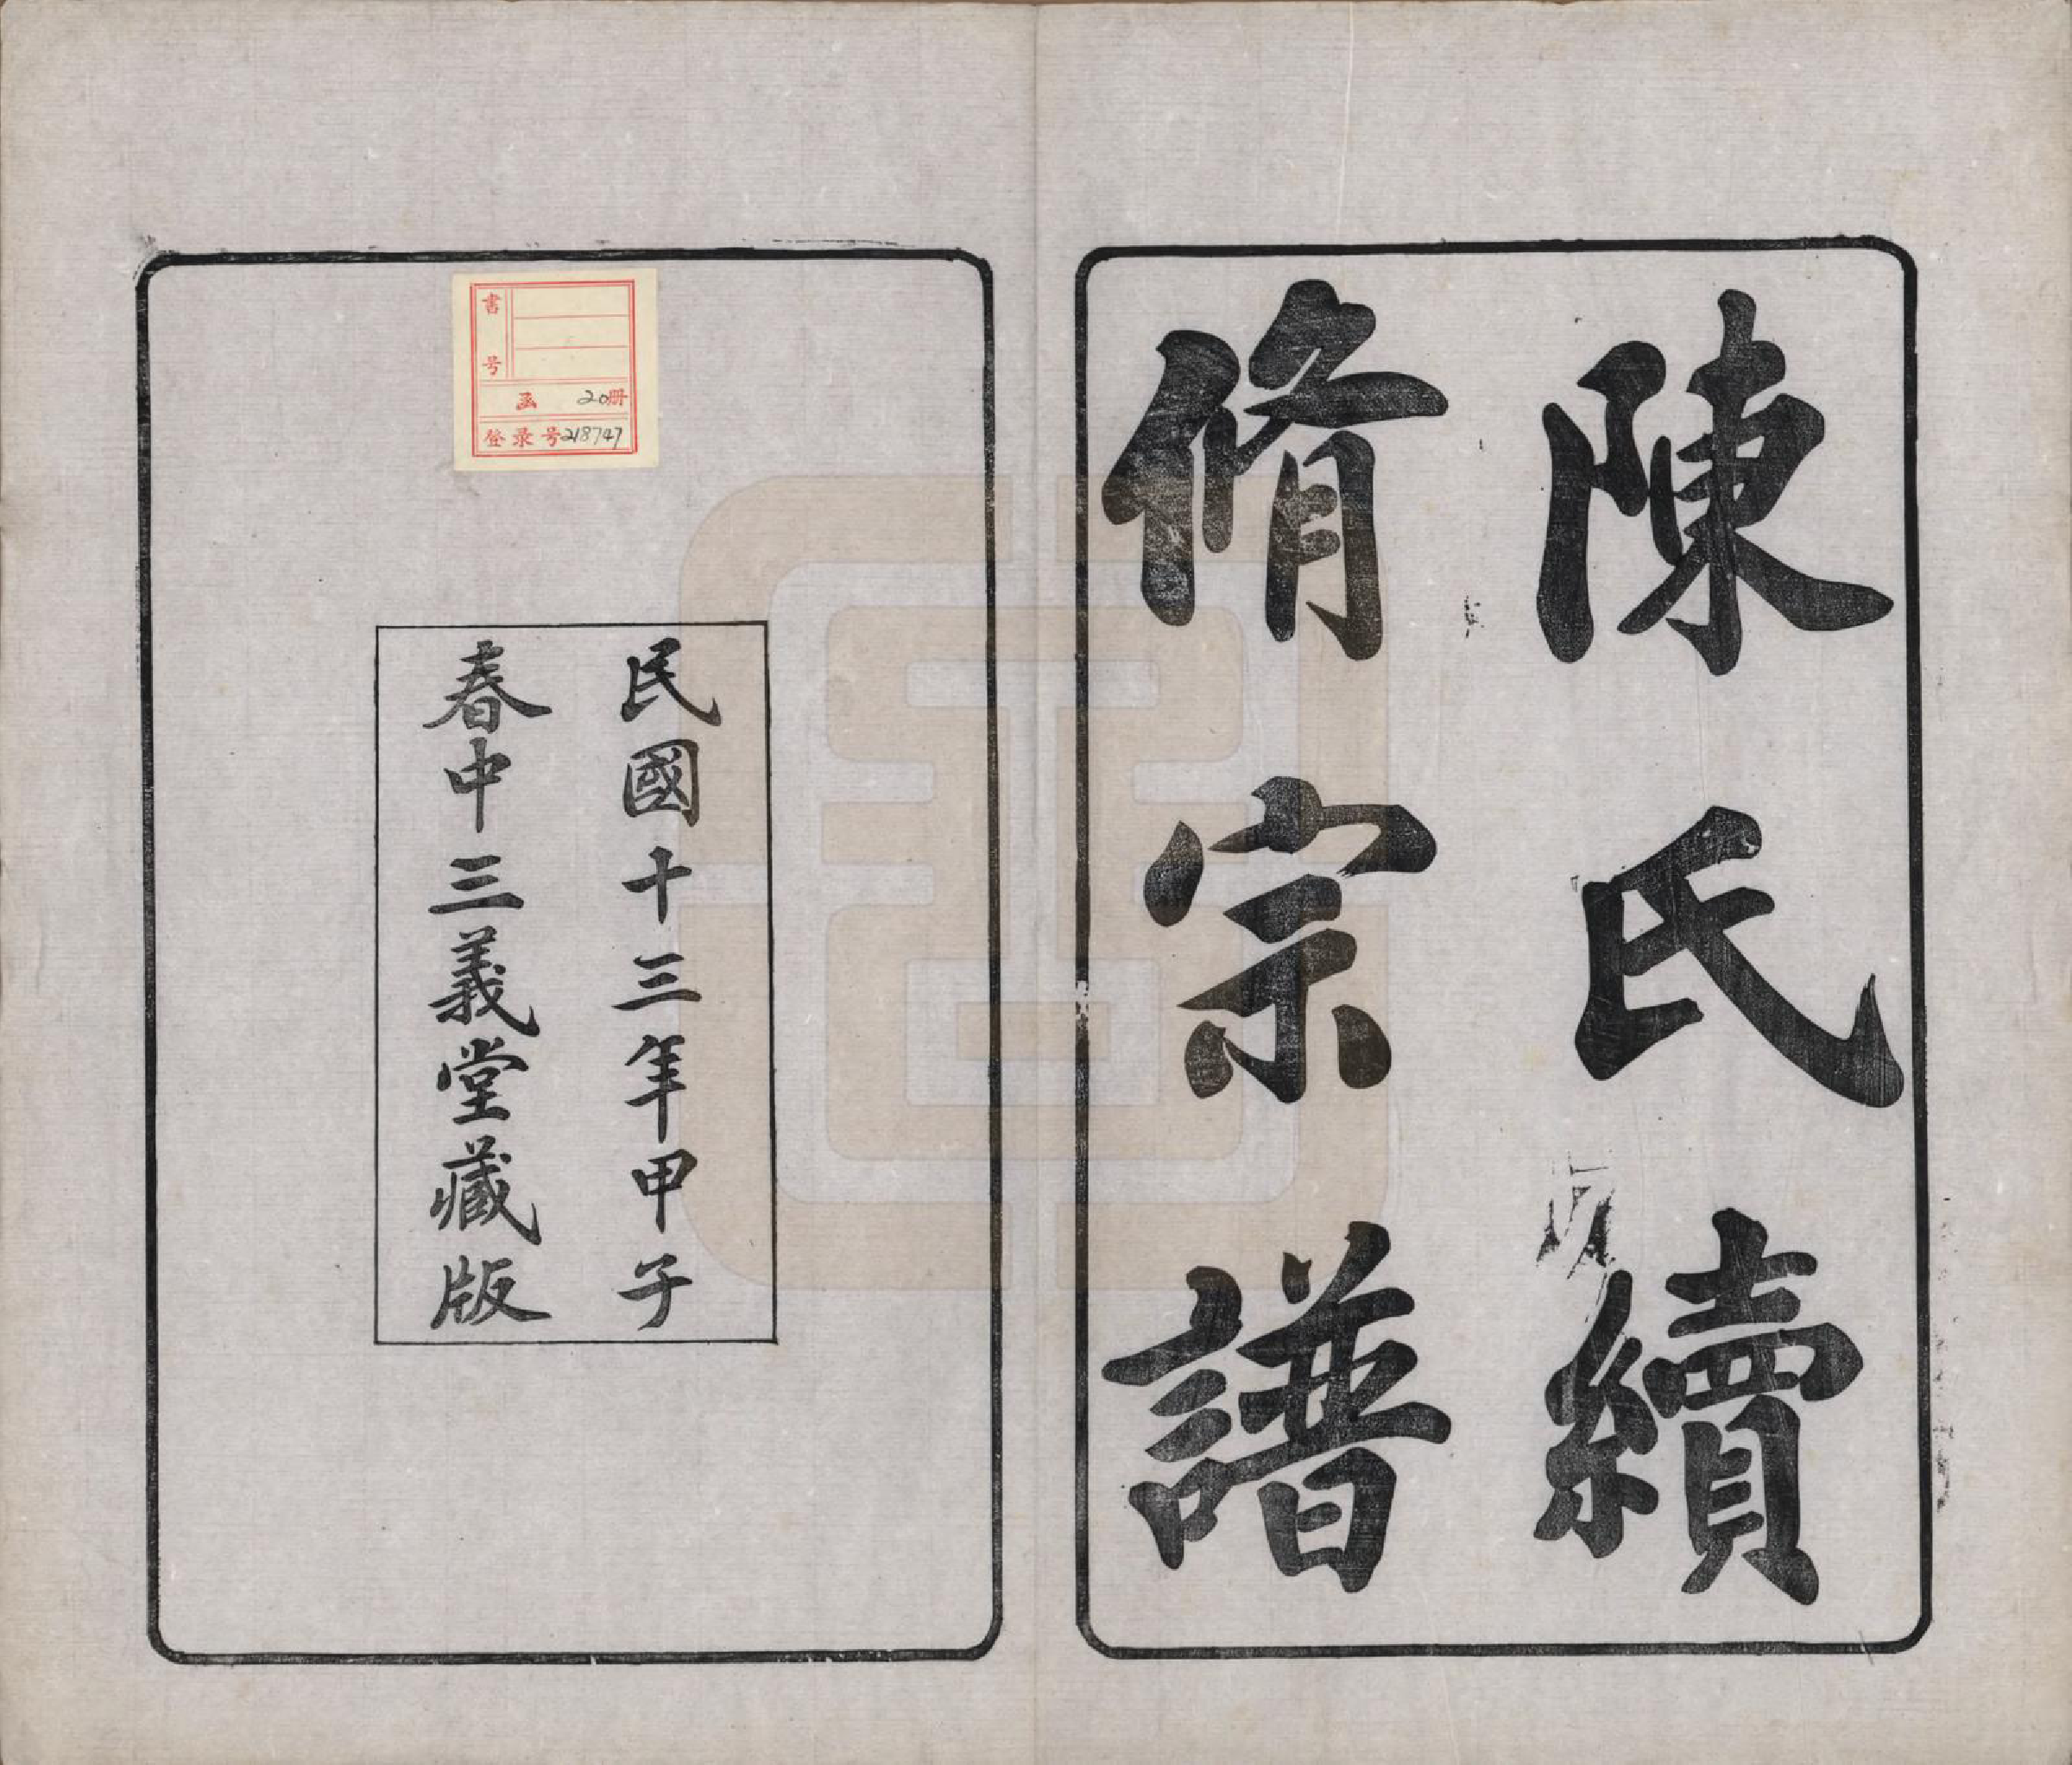 陳氏續
脩宗譜
民國十三年甲子
春中三義堂藏版
書号
函 20册
登录号218747